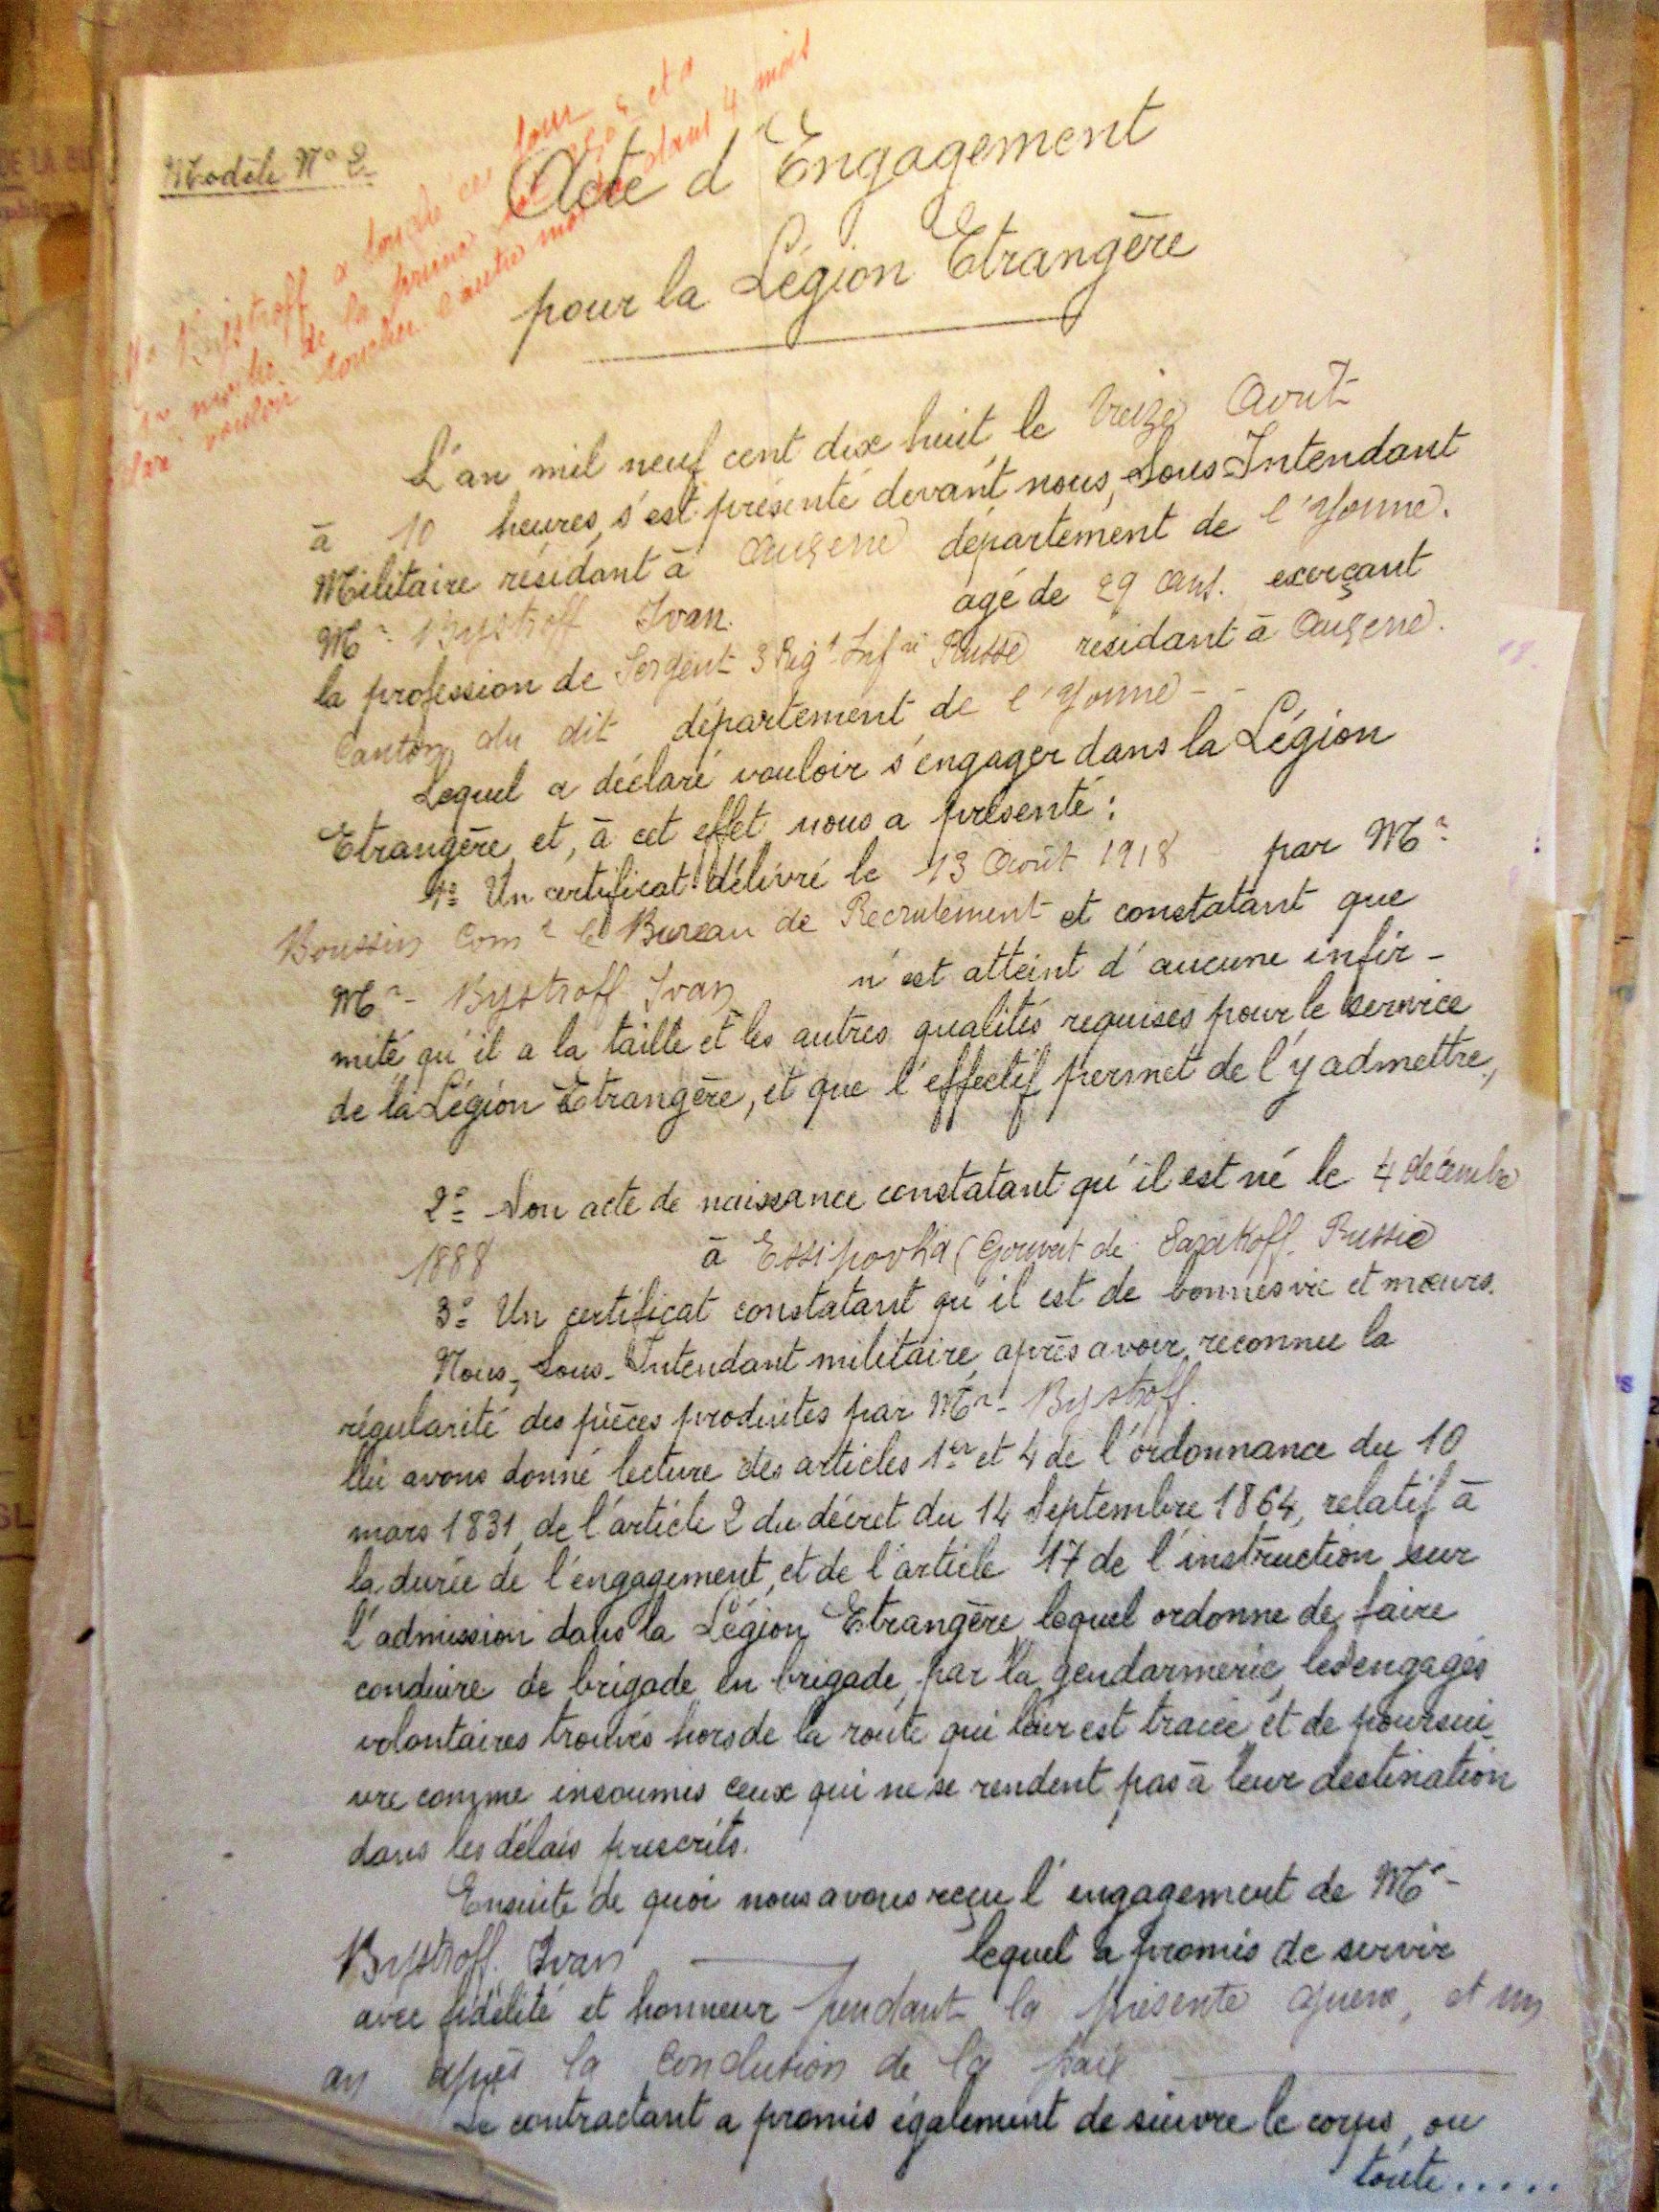 Modèle N° 2
Mr Bystroff a touché ce jour
la moitié de la prime soit et a
déclaré vouloir toucher l'autre moitié dans 4 mois
Acte d'Engagement
pour la Légion Etrangère
L'an mil neuf cent dix huit, le treize Août
à 10 heures, s'est présenté devant nous, Sous-Intendant
Militaire résidant à Auxerre département de l'Yonne.
Mr Bystroff Ivan. agé de 29 ans. exerçant
la profession de Sergent 3 Régt Infrie Russe résidant à Auxerre.
Canton du dit département de l'Yonne -
Lequel a déclaré vouloir s'engager dans la Légion
Etrangère et, à cet effet nous a présenté :
1º Un certificat délivré le 13 Août 1918 par Mr
Boussin Comt le Bureau de Recrutement et constatant que
Mr - Bystroff Ivan n'est atteint d'aucune infir-
mité qu'il a la taille et les autres qualités requises pour le service
de la Légion Etrangère, et que l'effectif permet de l'y admettre,
2º Son acte de naissance constatant qu'il est né le 4 décembre
1888 à Essipovka (Gouvert de Russie
3º Un certificat constatant qu'il est de bonnes vie et mœurs.
Nous, Sous-Intendant militaire, après avoir reconnu la
régularité des pièces produites par Mr - Bystroff.
lui avons donné lecture des articles 1er et 4 de l'ordonnance du 10
mars 1831, de l'article 2 du décret du 14 Septembre 1864, relatif à
la durée de l'engagement, et de l'article 17 de l'instruction sur
l'admission dans la Légion Etrangère lequel ordonne de faire
conduire de brigade en brigade, par la gendarmerie, les engagés
volontaires trouvés hors de la route qui leur est tracée et de poursui-
vre comme insoumis ceux qui ne se rendent pas à leur destination
dans les délais prescrits.
Ensuite de quoi nous avons reçu l'engagement de Mr -
Bystroff. Ivan lequel a promis de servir
avec fidélité et honneur pendant la présente guerre, et un
an après la conclusion de la paix
Le contractant a promis également de suivre le corps, ou
toute.....